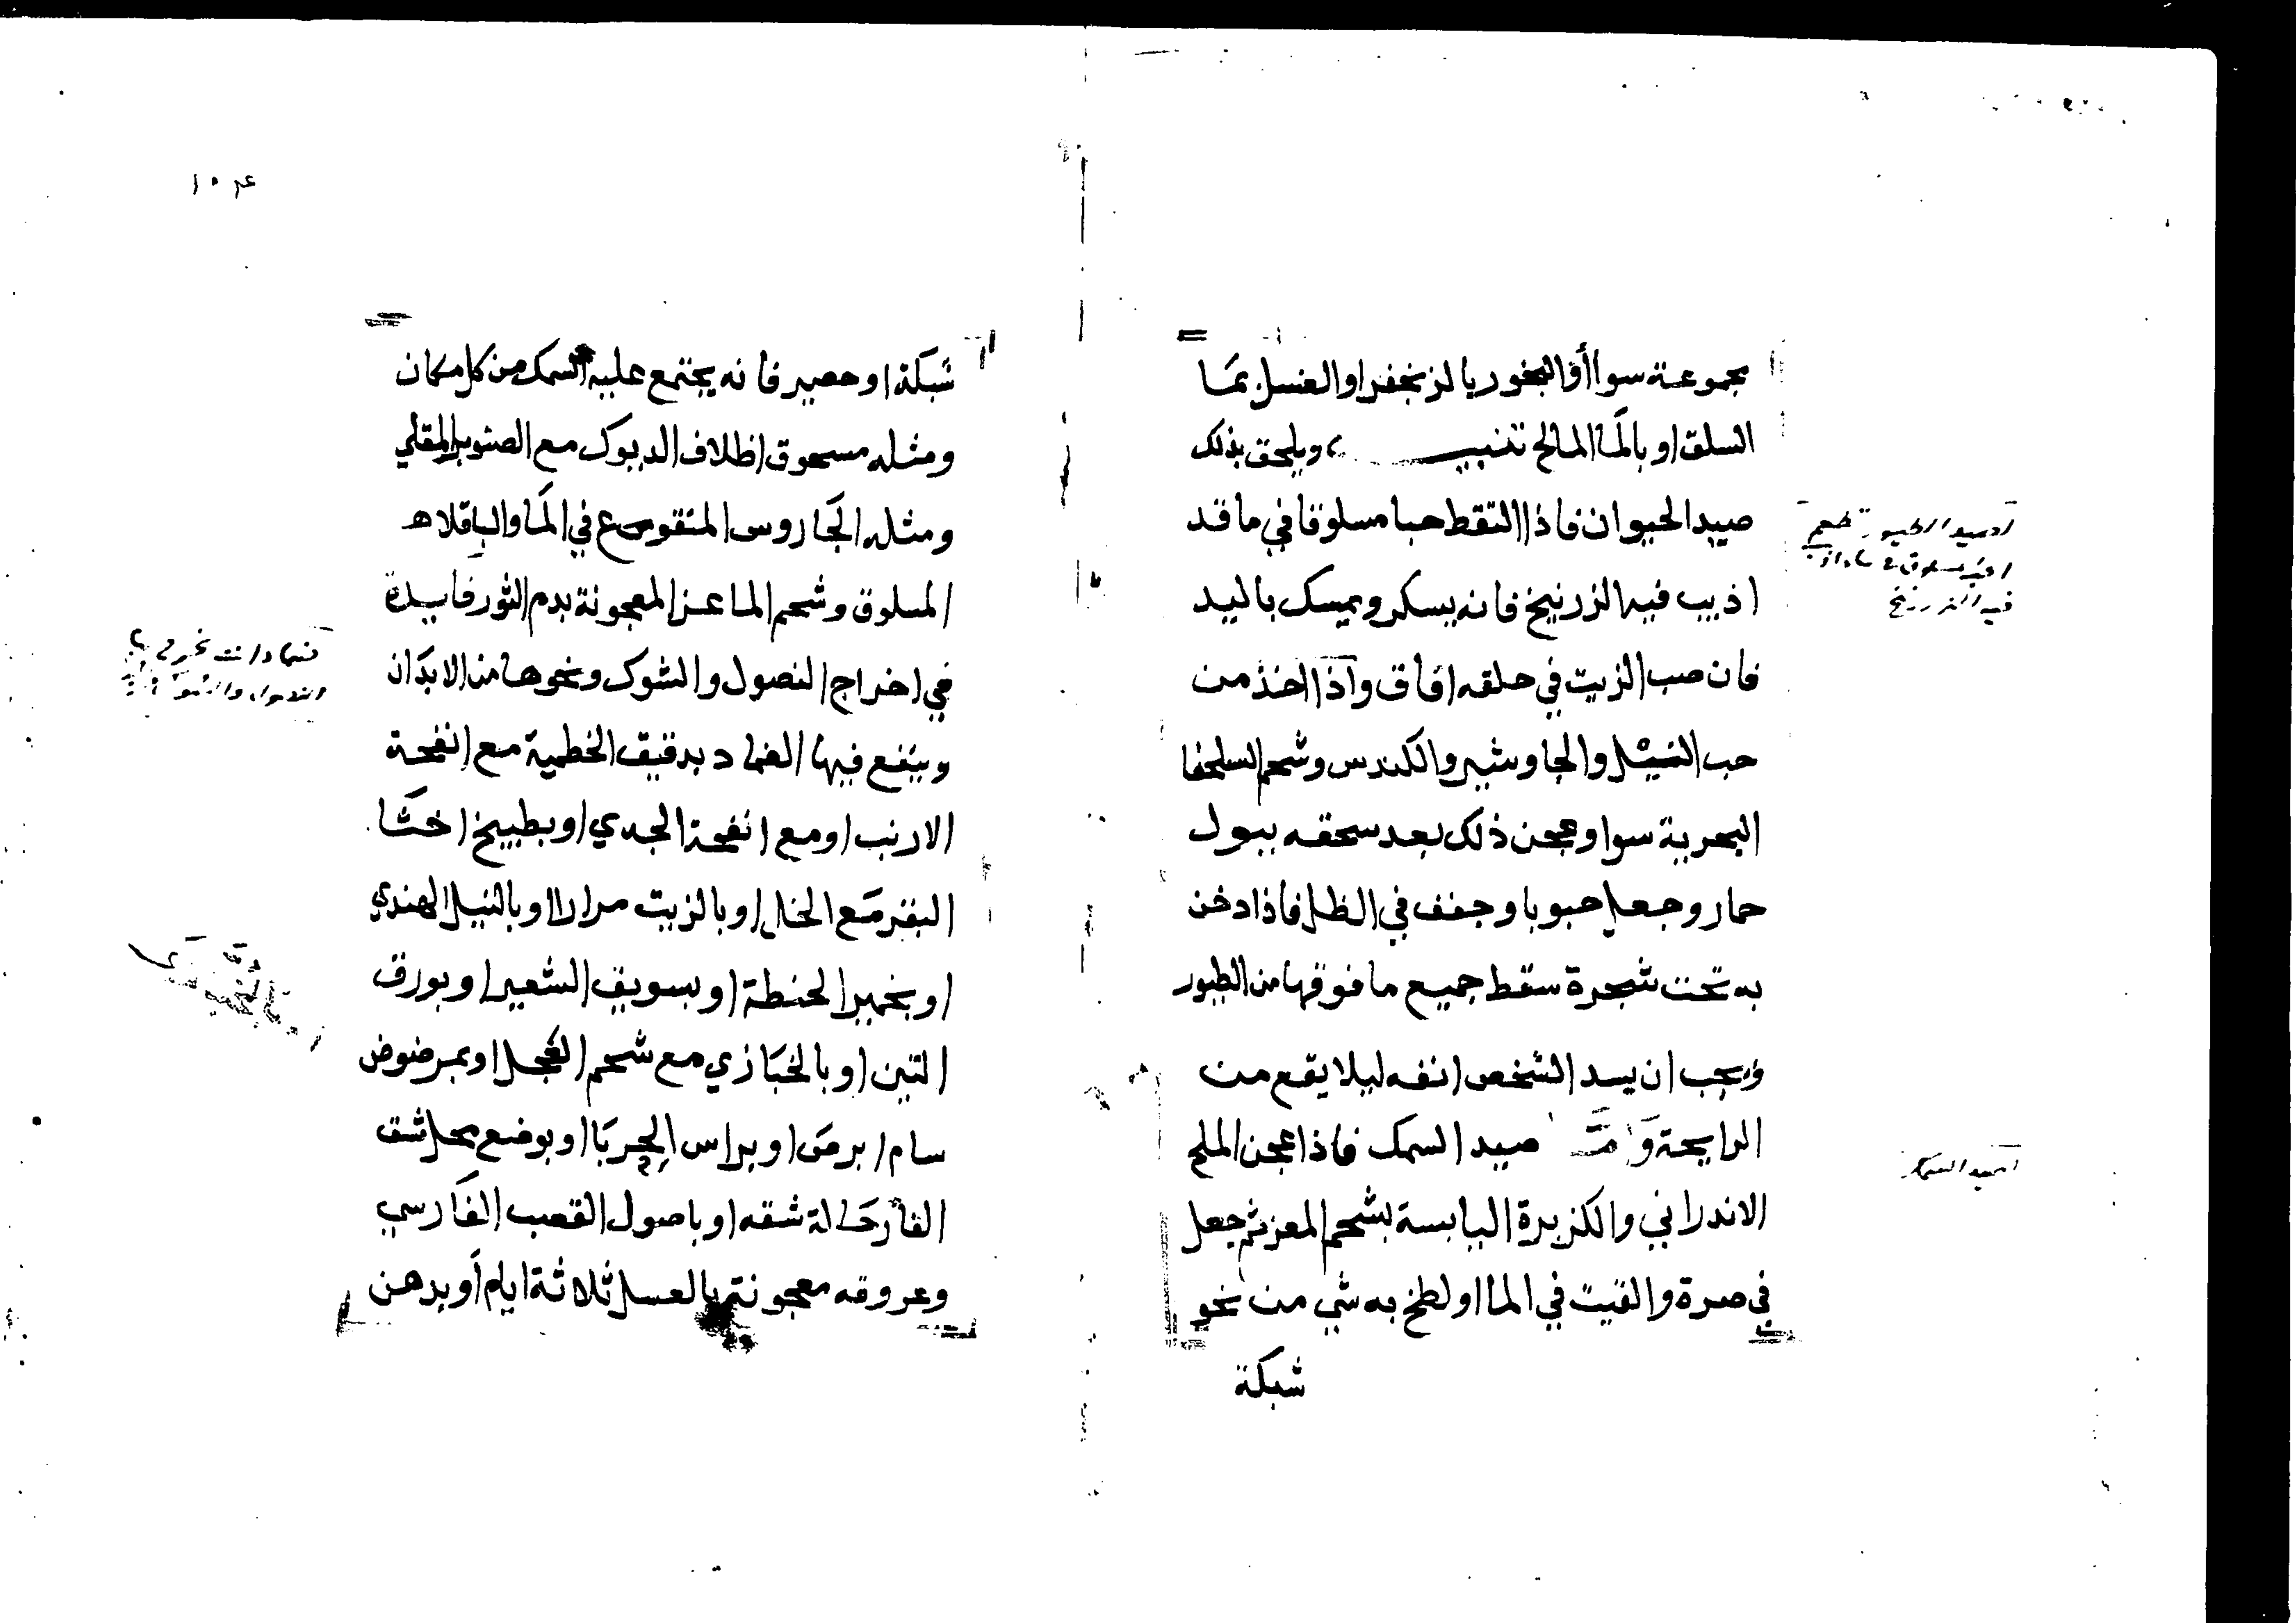 مجموعة سوا أو البخور بالزنجفر او الغسل بما
السلق او بالما المالح تنبيه ويلحق بذلك
صيد الحيوان فاذا التقط حبا مسلوقا في ما قد
اذيب فيه الزرنيخ فانه يسكر ويمسك باليد
فان صب الزيت في حلقه افاق واذا اخذ من
حب النيل والجاوشير والكندس وشحم السلحفا
البحرية سوا وعجن ذلك بعد سحقه ببول
حمار وجعل حبوبا وجفف في الظل فاذا دخن
به تحت شجرة سقط جميع ما فوقها من الطيور
ويجب ان يسد الشخص انفه ليلا يقع من
الرايحة صيد السمك فاذا عجن الملح
الاندراني والكزبرة اليابسة بشحم المعز ثم جعل
في صرة والقيت في الما او لطخ به شي من نحو
شبكة
صيد السمك
١٠٤
شبكة او حصير فانه يجتمع عليه السمك من كل مكان
ومثله مسحوق اظلاف الديوك مع الصنوبر المقلي
ومثله الجاروس المنقوع في الما والباقلاه
المسلوق وشحم الماعز المعجونة بدم الثور فايدة
في اخراج النصول والشوك ونحوها من الابدان
وينفع فيها الضماد بدقيق الخطمية مع انفحة
الارنب او مع انفحة الجدي او بطبيخ اخثا
البقر مع الخل او بالزيت مرارا او بالنيل الهندي
او بخمير الحنطة او بسويق الشعير او بورق
التين او بالخبازي مع شحم الفجل او بمرضوض
سام ابرص او براس الحربا او بوضع محل شق
الفار حالة شقه او باصول القصب الفارسي
وعروقه معجونة بالعسل ثلاثة ايام أو بدهن